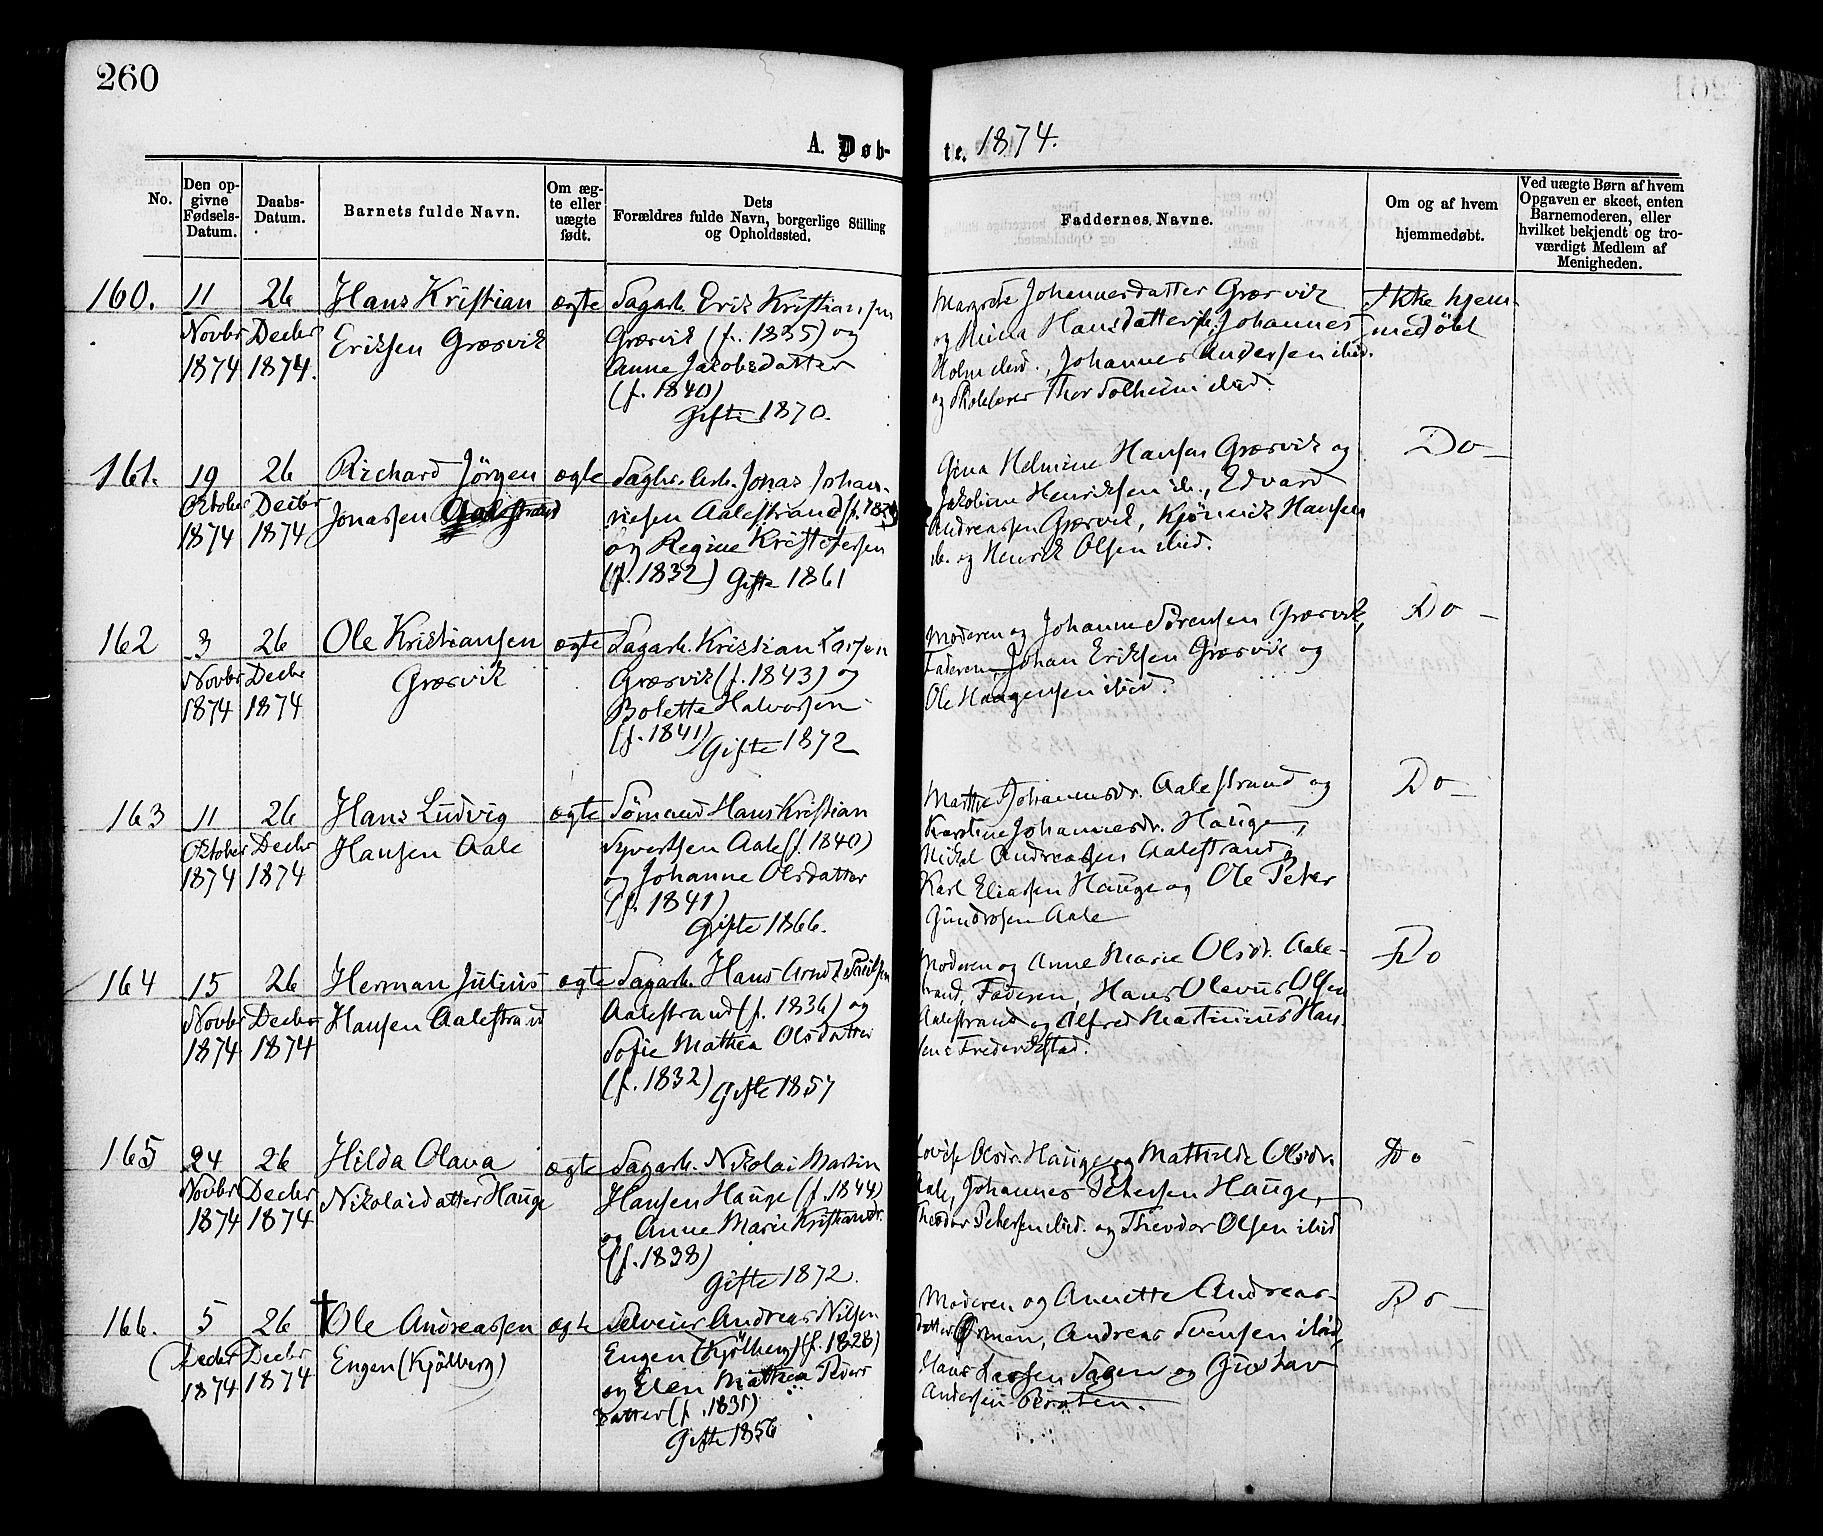 260
A. Døb-
te. 1874.
No.
Den op-
givne
Fødsels-
Datum.
Daabs-
Datum.
Barnets fulde Navn.
Om æg-
te eller
uægte
født.
Dets
Forældres fulde Navn, borgerlige Stilling
og Opholdssted.
Faddernes Navne.
Om og af hvem
hjemmedøbt.
Ved uægte Børn af hvem
Opgaven er skeet, enten
Barnemoderen, eller
hvilket bekjendt og tro-
værdigt Medlem af
Menigheden.
160.
11
Novbr
1874
26
Decbr
1874.
Hans Kristian
Eriksen Græsvik
ægte
Sagarb. Erik Kristiansen
Græsvik (f. 1835) og
Anne Jakobsdatter
(f. 1840)
Gifte 1870.
Margrete Johannesdatter Græsvik
og Hansdatter Johannes
Holm ibid., Johannes Andersen ibid.
og Skolelærer Thor Solheim ibid.
Ikke hjem-
medøbt
161.
19
Oktober
1874
26
Decbr
1874
Richard Jörgen
Jonassen Aalestrand
ægte
Sagbr. Arb. Jonas Johan-
nesen Aalestrand
og Regine Kristofersen
(f. 1832) Gifte 1861
Gina Helmine Hansen Græsvik og
Jakobine Henriksen ib., Edvard
Andreassen Græsvik, Hansen
ib. og Henrik Olsen ibid.
Do
162
3
Novbr
1874
26
Decbr
1874
Ole Kristiansen
Græsvik
ægte
Sagarb. Kristian Larsen
Græsvik (f. 1843) og
Bolette Halvorsen
(f. 1841) Gifte 1872
Moderen og Johanne Sörensen Græsvik,
Faderen, Johan Eriksen Græsvik og
Ole Haagensen ibid.
Do
163
11
Oktober
1874
26
Decbr
1874
Hans Ludvig
Hansen Aale
ægte
Sömand Hans Kristian
Syvertsen Aale (f. 1840)
og Johanne Olsdatter
(f. 1841)
Gifte 1866.
Marthe Johannesdr. Aalestrand og
Karoline Johannesdr. Hauge,
Nikol. Andreassen Aalestrand,
Karl Eliassen Hauge og Ole Peter
Gundrosen Aale
Do
164
15
Novbr
1874
26
Decbr
1874
Herman Julius
Hansen Aalestrand
ægte
Sagarb. Hans Arndt
Aalestrand (f. 1836) og
Sofie Mathea Olsdatter
(f. 1832) Gifte 1857
Moderen og Anne Marie Olsdr. Aale-
strand, Faderen, Hans Olavus Olsen
Aalestrand og Alfred Martinius Han-
sen Frederikstad.
Do
165
24
Novbr
1874
26
Decbr
1874
Hilda Olava
Nikolaidatter Hauge
ægte
Sagarb. Nikolai Martin
Hansen Hauge (f. 1844)
og Anne Marie Kristiansdr.
(f. 1838)
Gifte 1872.
Lovise Olsdr. Hauge og Mathilde Olsdr.
Aale, Johannes Petersen Hauge,
Theodor Petersen ibid. og Theodor Olsen ibid
Do
166.
5
Decbr
1874
26
Decbr
1874
† Ole Andreassen
Engen (Kjölberg)
ægte
Selveier Andreas Nilsen
Engen (Kjölberg) (f. 1828)
og Elen Mathea Peders
datter (f. 1831)
Gifte 1856
Moderen og Annette Andreas-
datter Örmen, Andreas Svensen ibid.,
Hans Larsen Sagen og Gustav
Andersen
Do